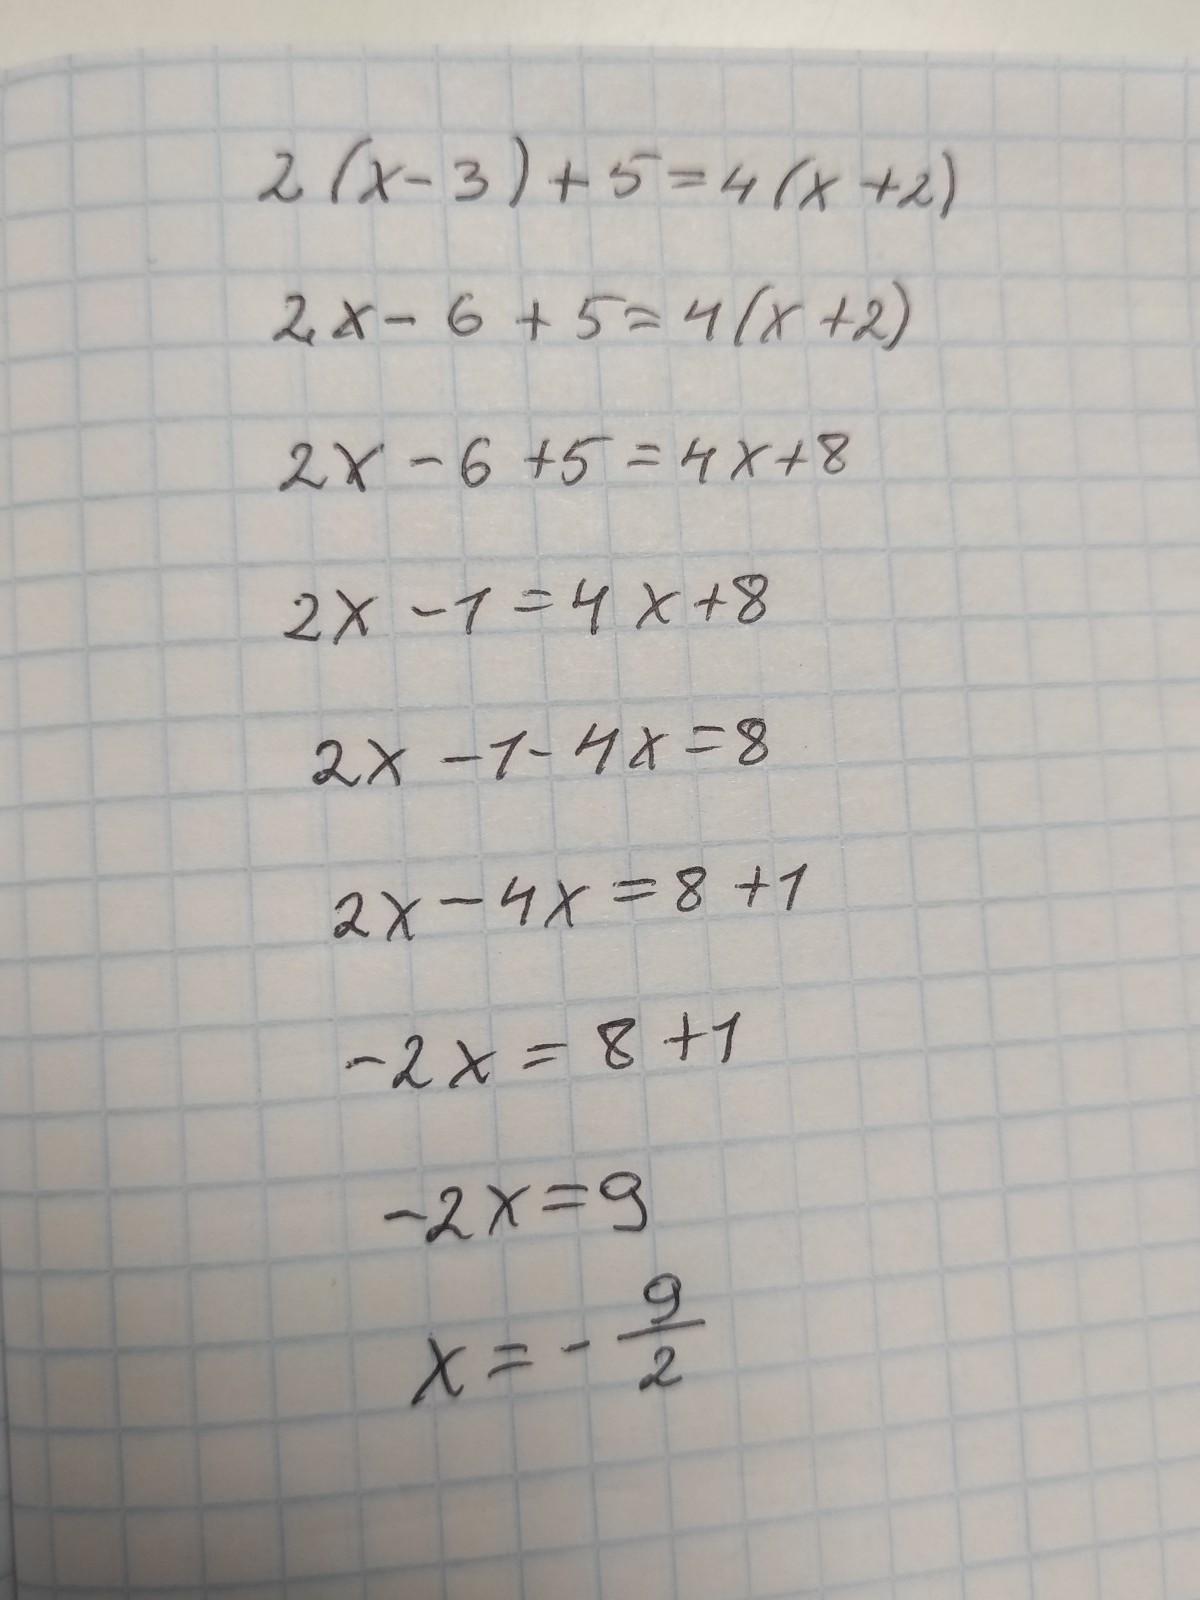 2(x-3)+5=4(x+2)
2x-6+5=4(x+2)
2x-6+5=4x+8
2x-1=4x+8
2x-1-4x=8
2x-4x=8+1
-2x=8+1
-2x=9
x=-9/2